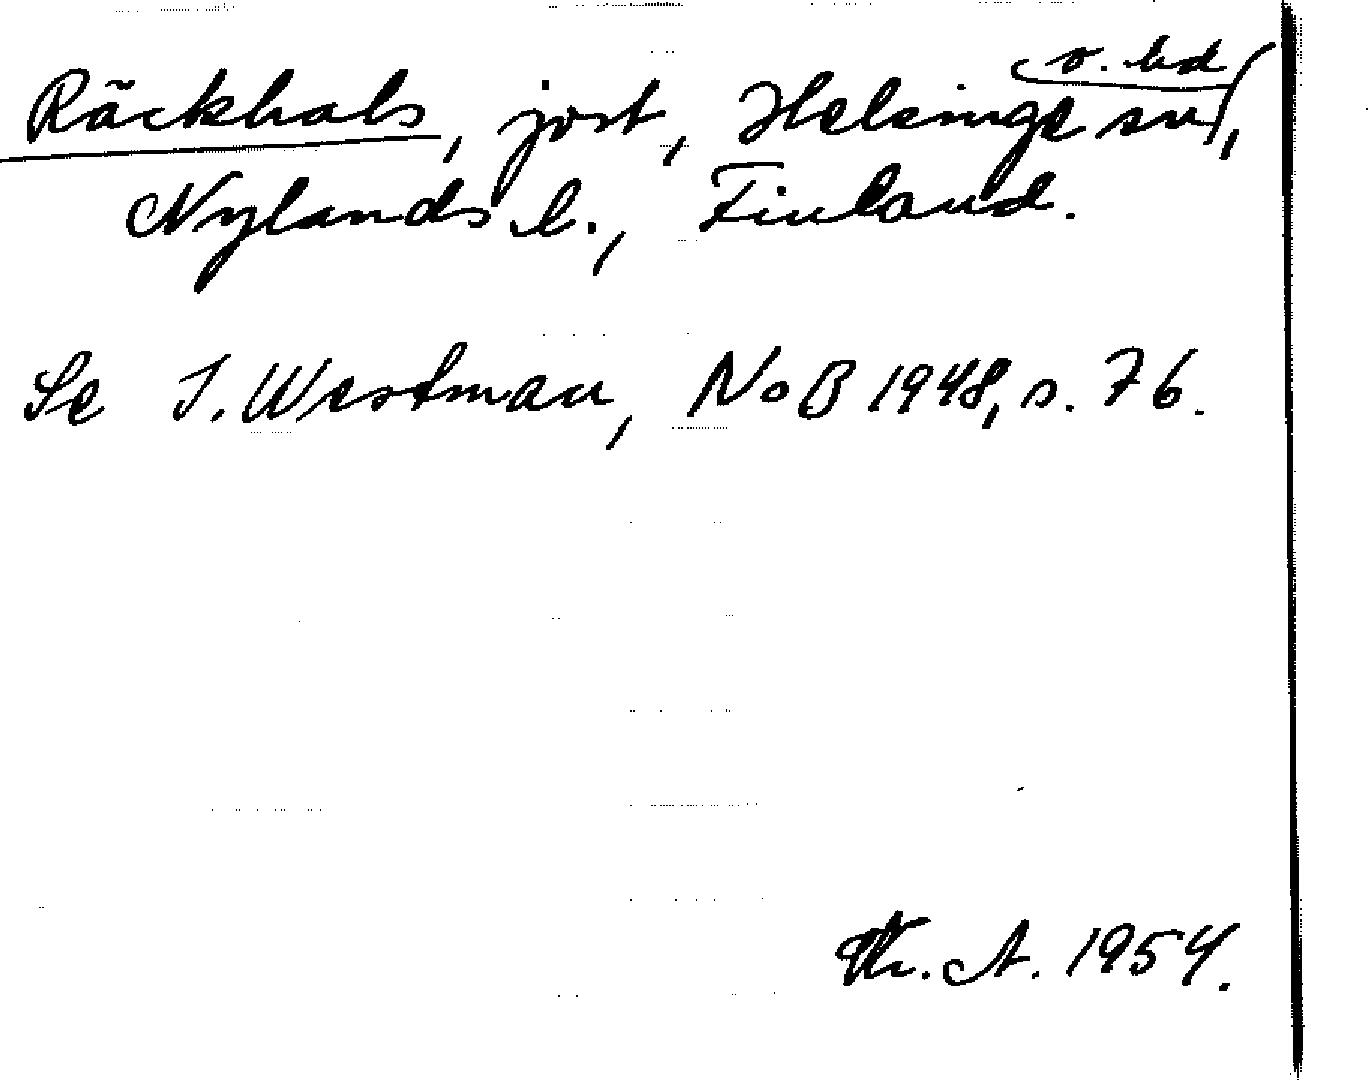 Räckhals, jord, Helsinge sn,
o. hd
Nylands l., Finland.
Se I. Westman, NoB 1948, s. 76.
Th. A. 1954.